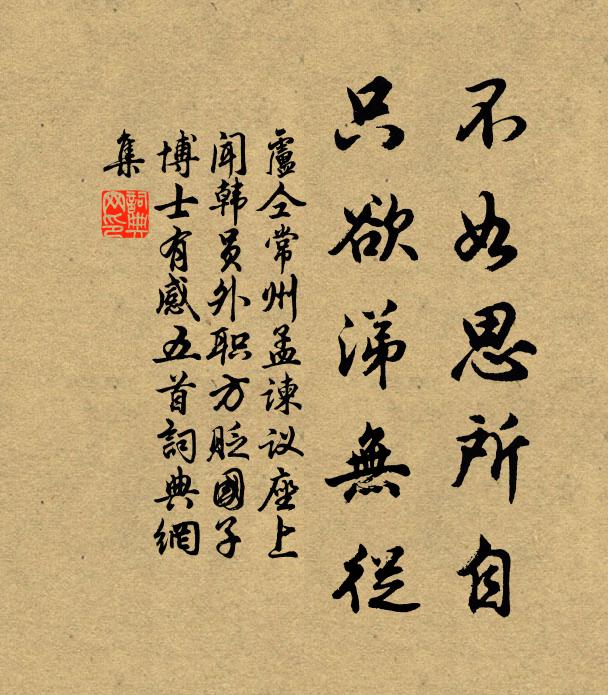 不如思所自
只欲涕無從
盧仝常州孟諫议座上
闻韩员外职方貶國子
博士有感五首詞典網
集
詞典網印